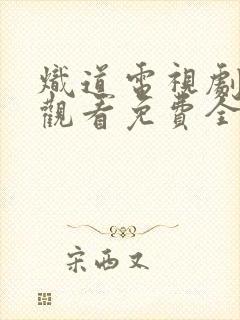 熾道電視劇
觀看免費全
宋西又